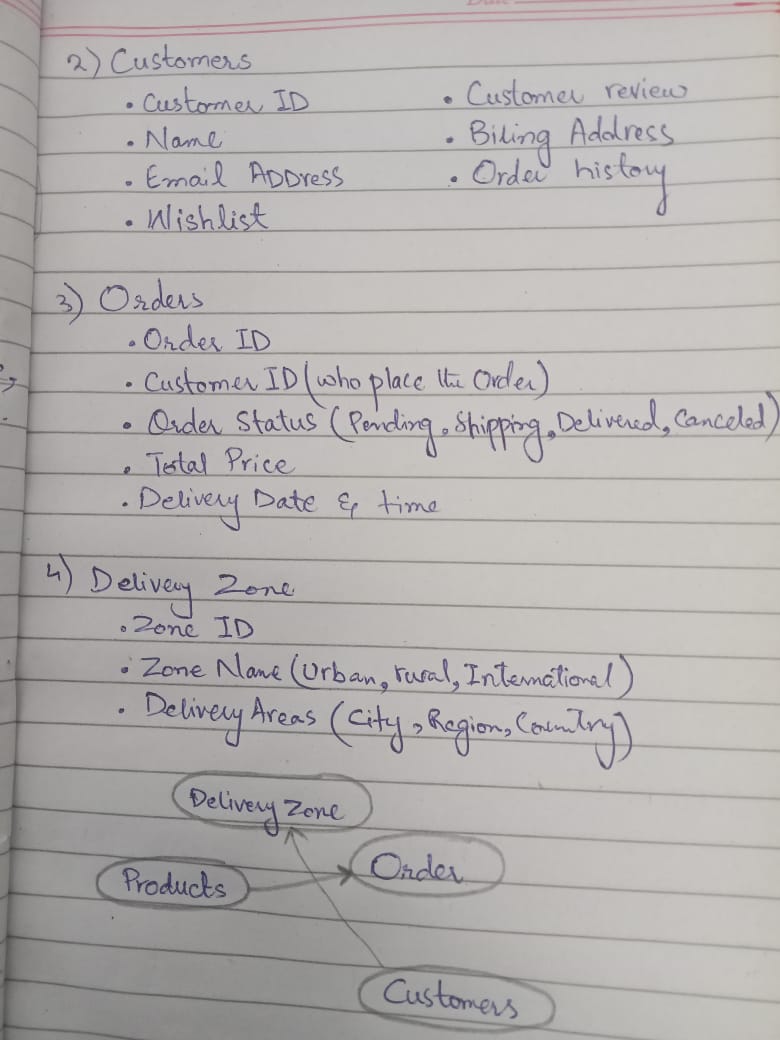 2) Customers
• Customer ID
• Customer review
• Name
• Biling Address
• Email ADDress
• Order history
• Wishlist
3) Orders
• Order ID
• Customer ID (who place the Order)
• Order Status (Pending, Shipping, Delivered, Canceled)
• Total Price
• Delivery Date & time
4) Delivery Zone
• Zone ID
• Zone Name (Urban, rural, International)
• Delivery Areas (City, Region, Country)
Delivery Zone
Order
Products
Customers